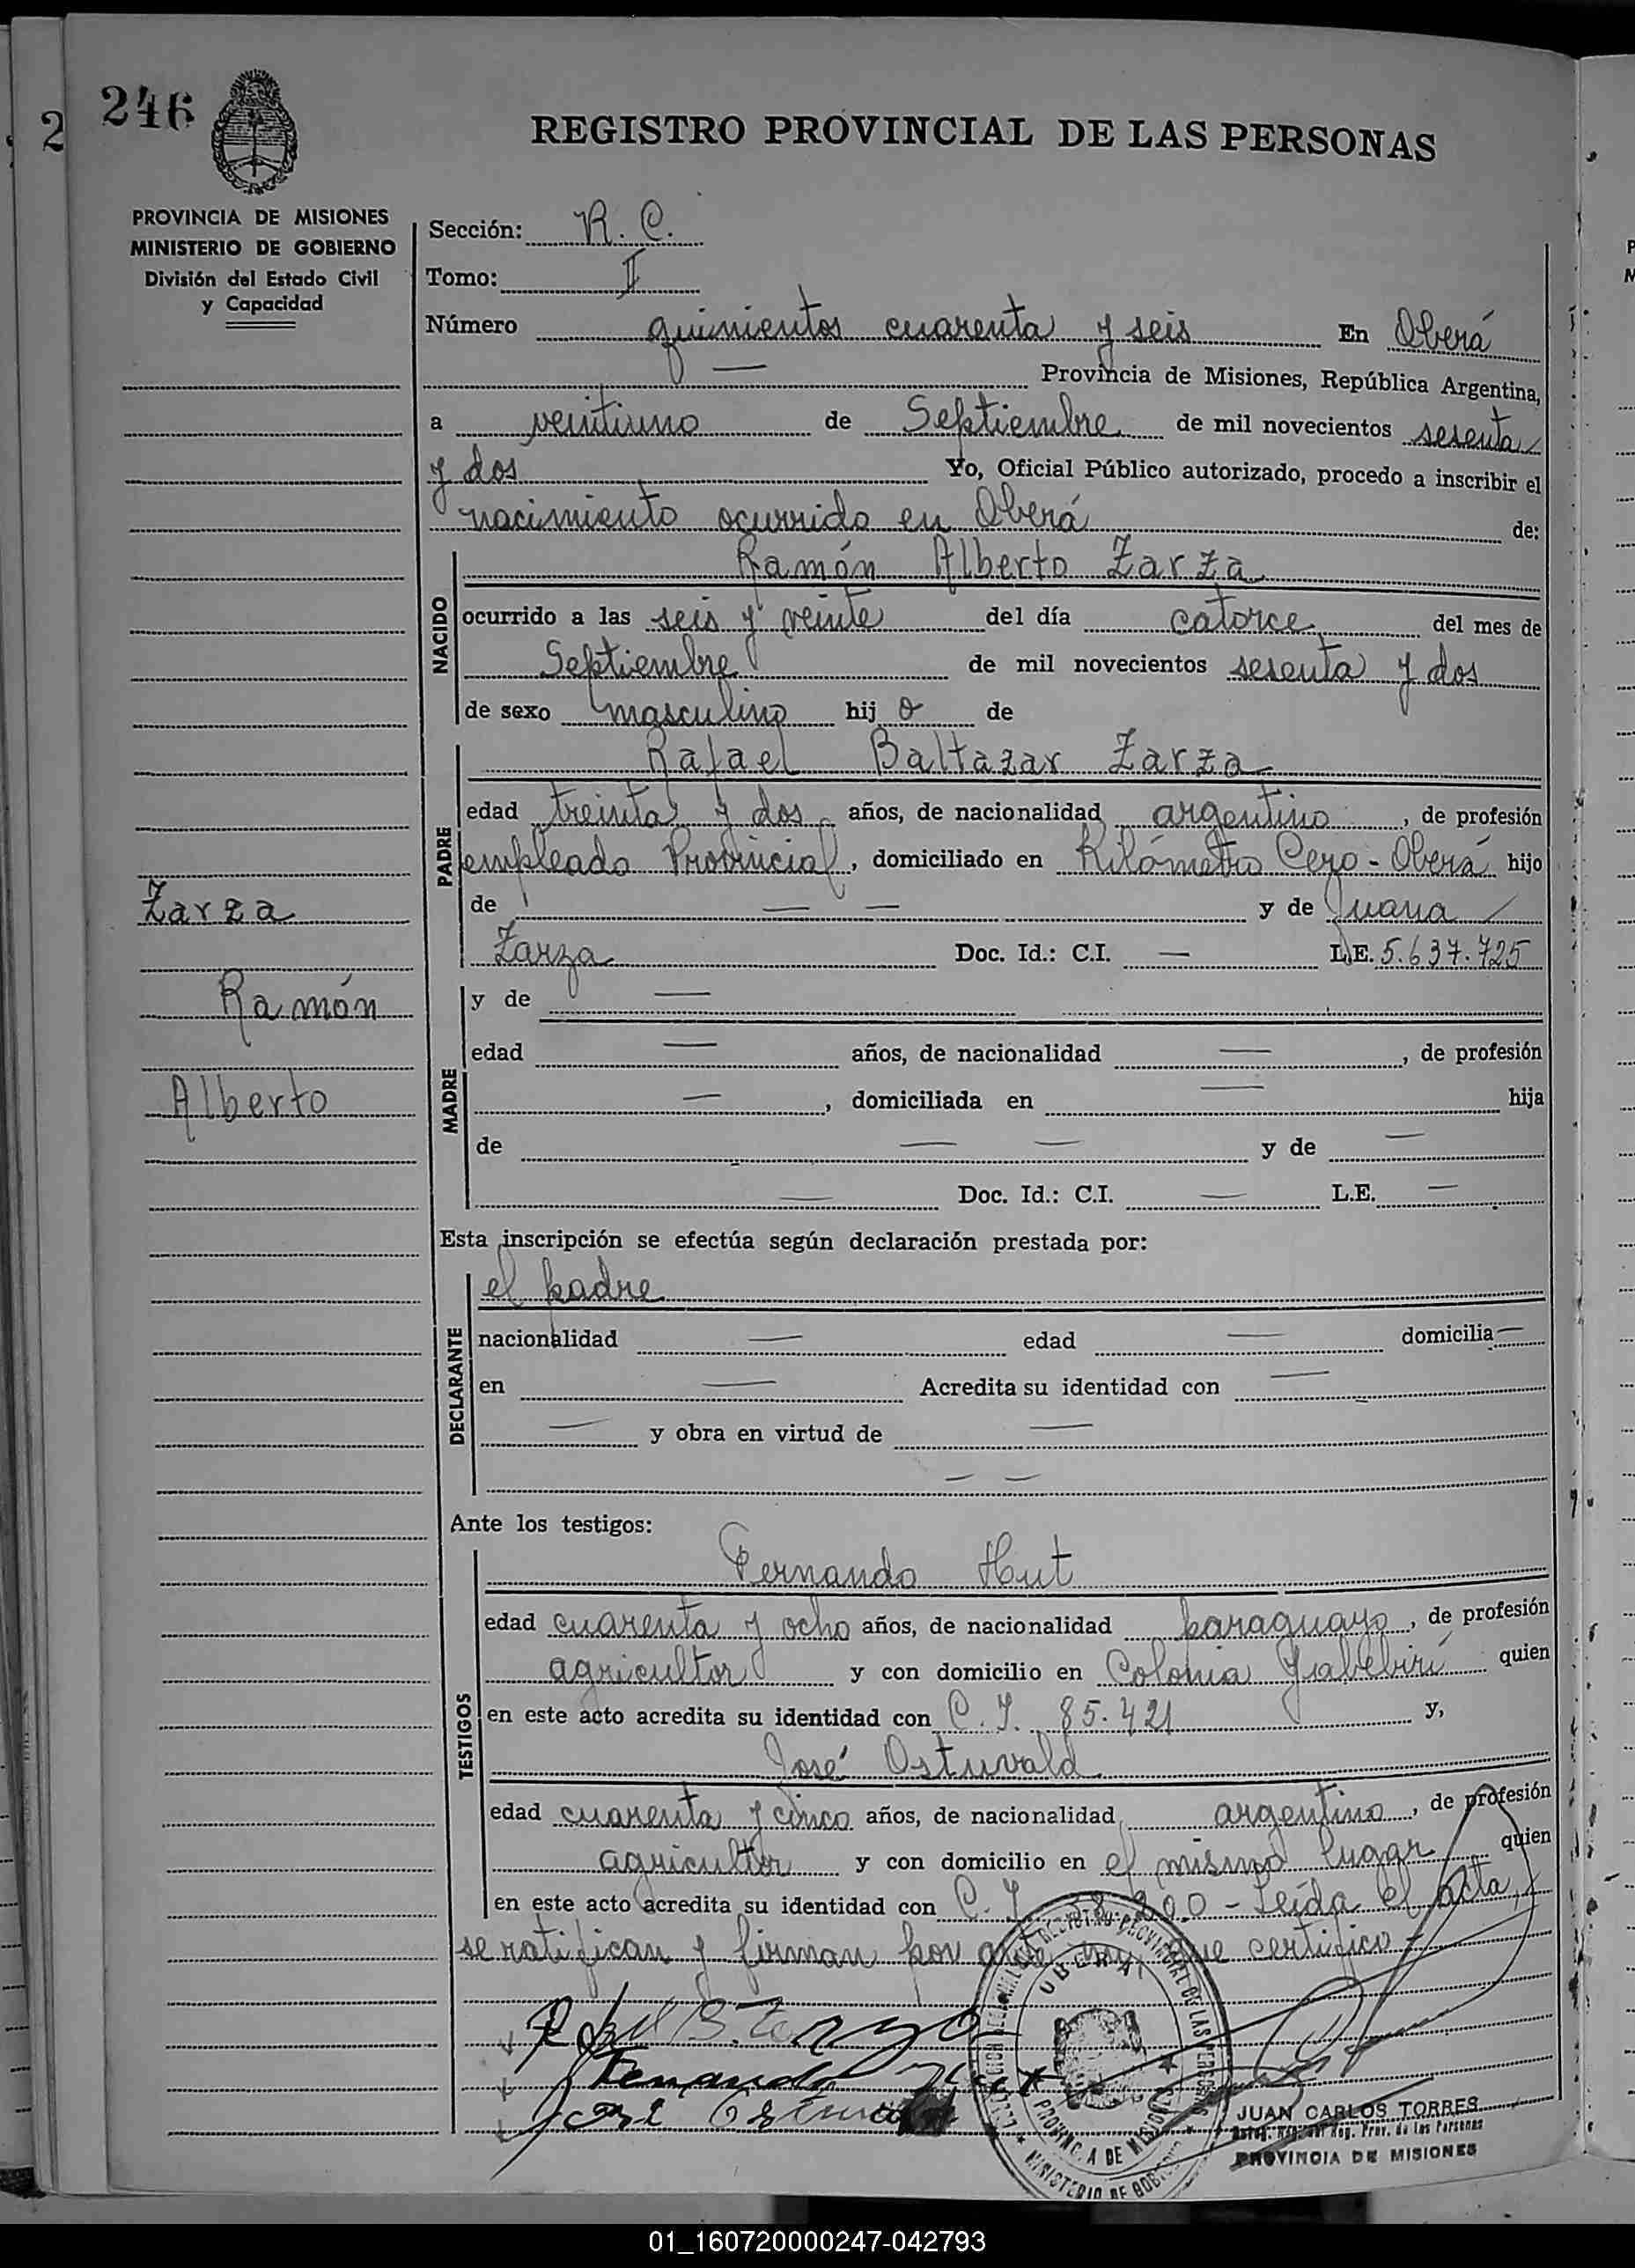 246
2
REGISTRO PROVINCIAL DE LAS PERSONAS
PROVINCIA DE MISIONES
MINISTERIO DE GOBIERNO
División del Estado Civil
y Capacidad
Sección: R. C.
Tomo: II
Número quinientos cuarenta y seis En Oberá
— Provincia de Misiones, República Argentina,
a veintiuno de Septiembre de mil novecientos sesenta
y dos Yo, Oficial Público autorizado, procedo a inscribir el
nacimiento ocurrido en Oberá de:
NACIDO
Ramón Alberto Zarza
ocurrido a las seis y veinte del día catorce del mes de
Septiembre de mil novecientos sesenta y dos
de sexo masculino hij o de
PADRE
Rafael Baltazar Zarza
edad treinta y dos años, de nacionalidad argentino, de profesión
empleado Provincial, domiciliado en Kilómetro Cero - Oberá hijo
de — — y de Juana
Zarza Doc. Id.: C.I. — L.E. 5.637.725
Zarza
Ramón
Alberto
MADRE
y de —
edad — años, de nacionalidad —, de profesión
—, domiciliada en — hija
de — — y de —
— Doc. Id.: C.I. — L.E. —
Esta inscripción se efectúa según declaración prestada por:
DECLARANTE
el padre
nacionalidad — edad — domicilia —
en — Acredita su identidad con —
— y obra en virtud de —
— —
Ante los testigos:
TESTIGOS
Fernando Hut
edad cuarenta y ocho años, de nacionalidad paraguayo, de profesión
agricultor y con domicilio en Colonia Yabebirí quien
en este acto acredita su identidad con C. I. 85.421 y,
José Ostuvald
edad cuarenta y cinco años, de nacionalidad argentino, de profesión
agricultor y con domicilio en el mismo lugar quien
en este acto acredita su identidad con C. I. - Leída el acta,
se ratifican y firman por ante mi que certifico -
Rafael B. Zarza
Fernando Hut
José
OBERA
PROVINCIA DE MISIONES
MINISTERIO DE GOBIERNO
JUAN CARLOS TORRES
Reg. Prov. de las Personas
PROVINCIA DE MISIONES
01_160720000247-042793